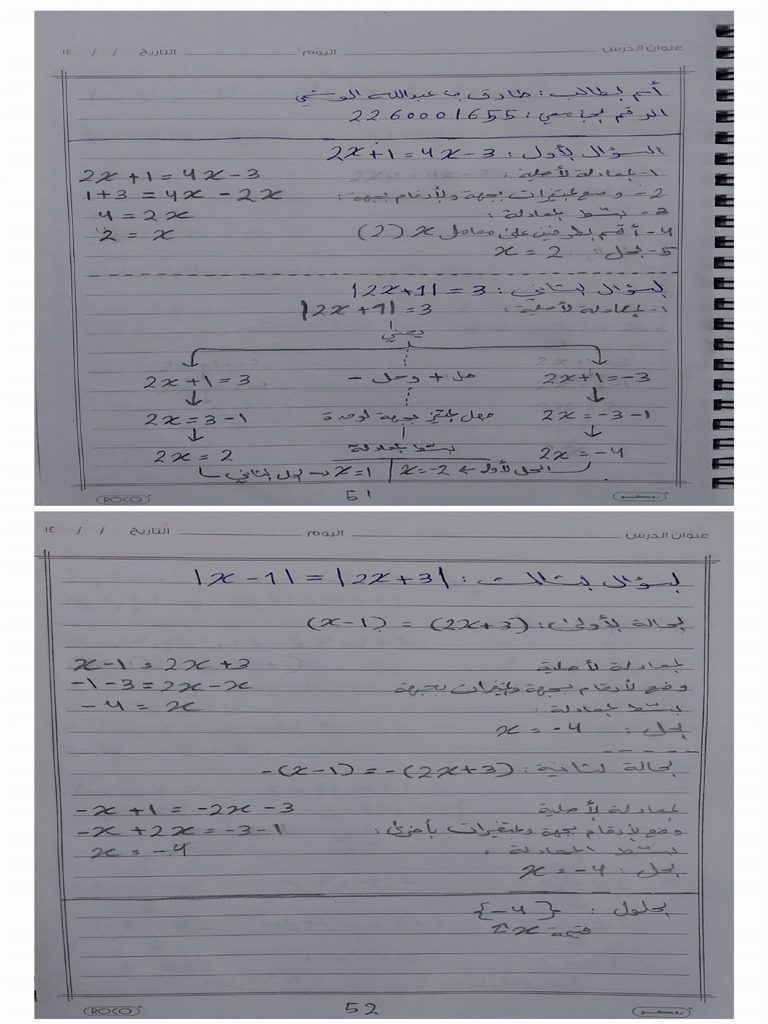 عنوان الدرس اليوم التاريخ / / ١٤
أسم الطالب : طارق بن عبدالله الوشمي
الرقم الجامعي : 2260001655
السؤال الأول : 2x+1=4x-3
1- المعادلة الأصلية : 2x+1=4x-3
2- وضع المتغيرات بجهة والأرقام بجهة : 1+3=4x-2x
3- بسّط المعادلة : 4=2x
4- أقسم الطرفين على معامل x (2) 2=x
5- الحل : x=2
السؤال الثاني : |2x+1|=3
1- المعادلة الأصلية : |2x+1|=3
يعني
2x+1=3 حل + وحل - 2x+1=-3
2x=3-1 جعل المتغير بجهة لوحدة 2x=-3-1
2x=2 بسّط المعادلة 2x=-4
الحل الأول ← x=-2 | x=1 → الحل الثاني
ROCO
51
عنوان الدرس اليوم التاريخ / / ١٤
السؤال الثالث : |x-1|=|2x+3|
الحالة الأولى : (x-1)=(2x+3)
المعادلة الأصلية x-1=2x+3
وضع الأرقام بجهة والمتغيرات بجهة -1-3=2x-x
بسّط المعادلة : -4=x
الحل : x=-4
الحالة الثانية : -(x-1)=-(2x+3)
المعادلة الأصلية -x+1=-2x-3
وضع الأرقام بجهة والمتغيرات بأخرى : -x+2x=-3-1
بسّط المعادلة : x=-4
الحل : x=-4
الحلول : {-4}
قيمة x
ROCO
52